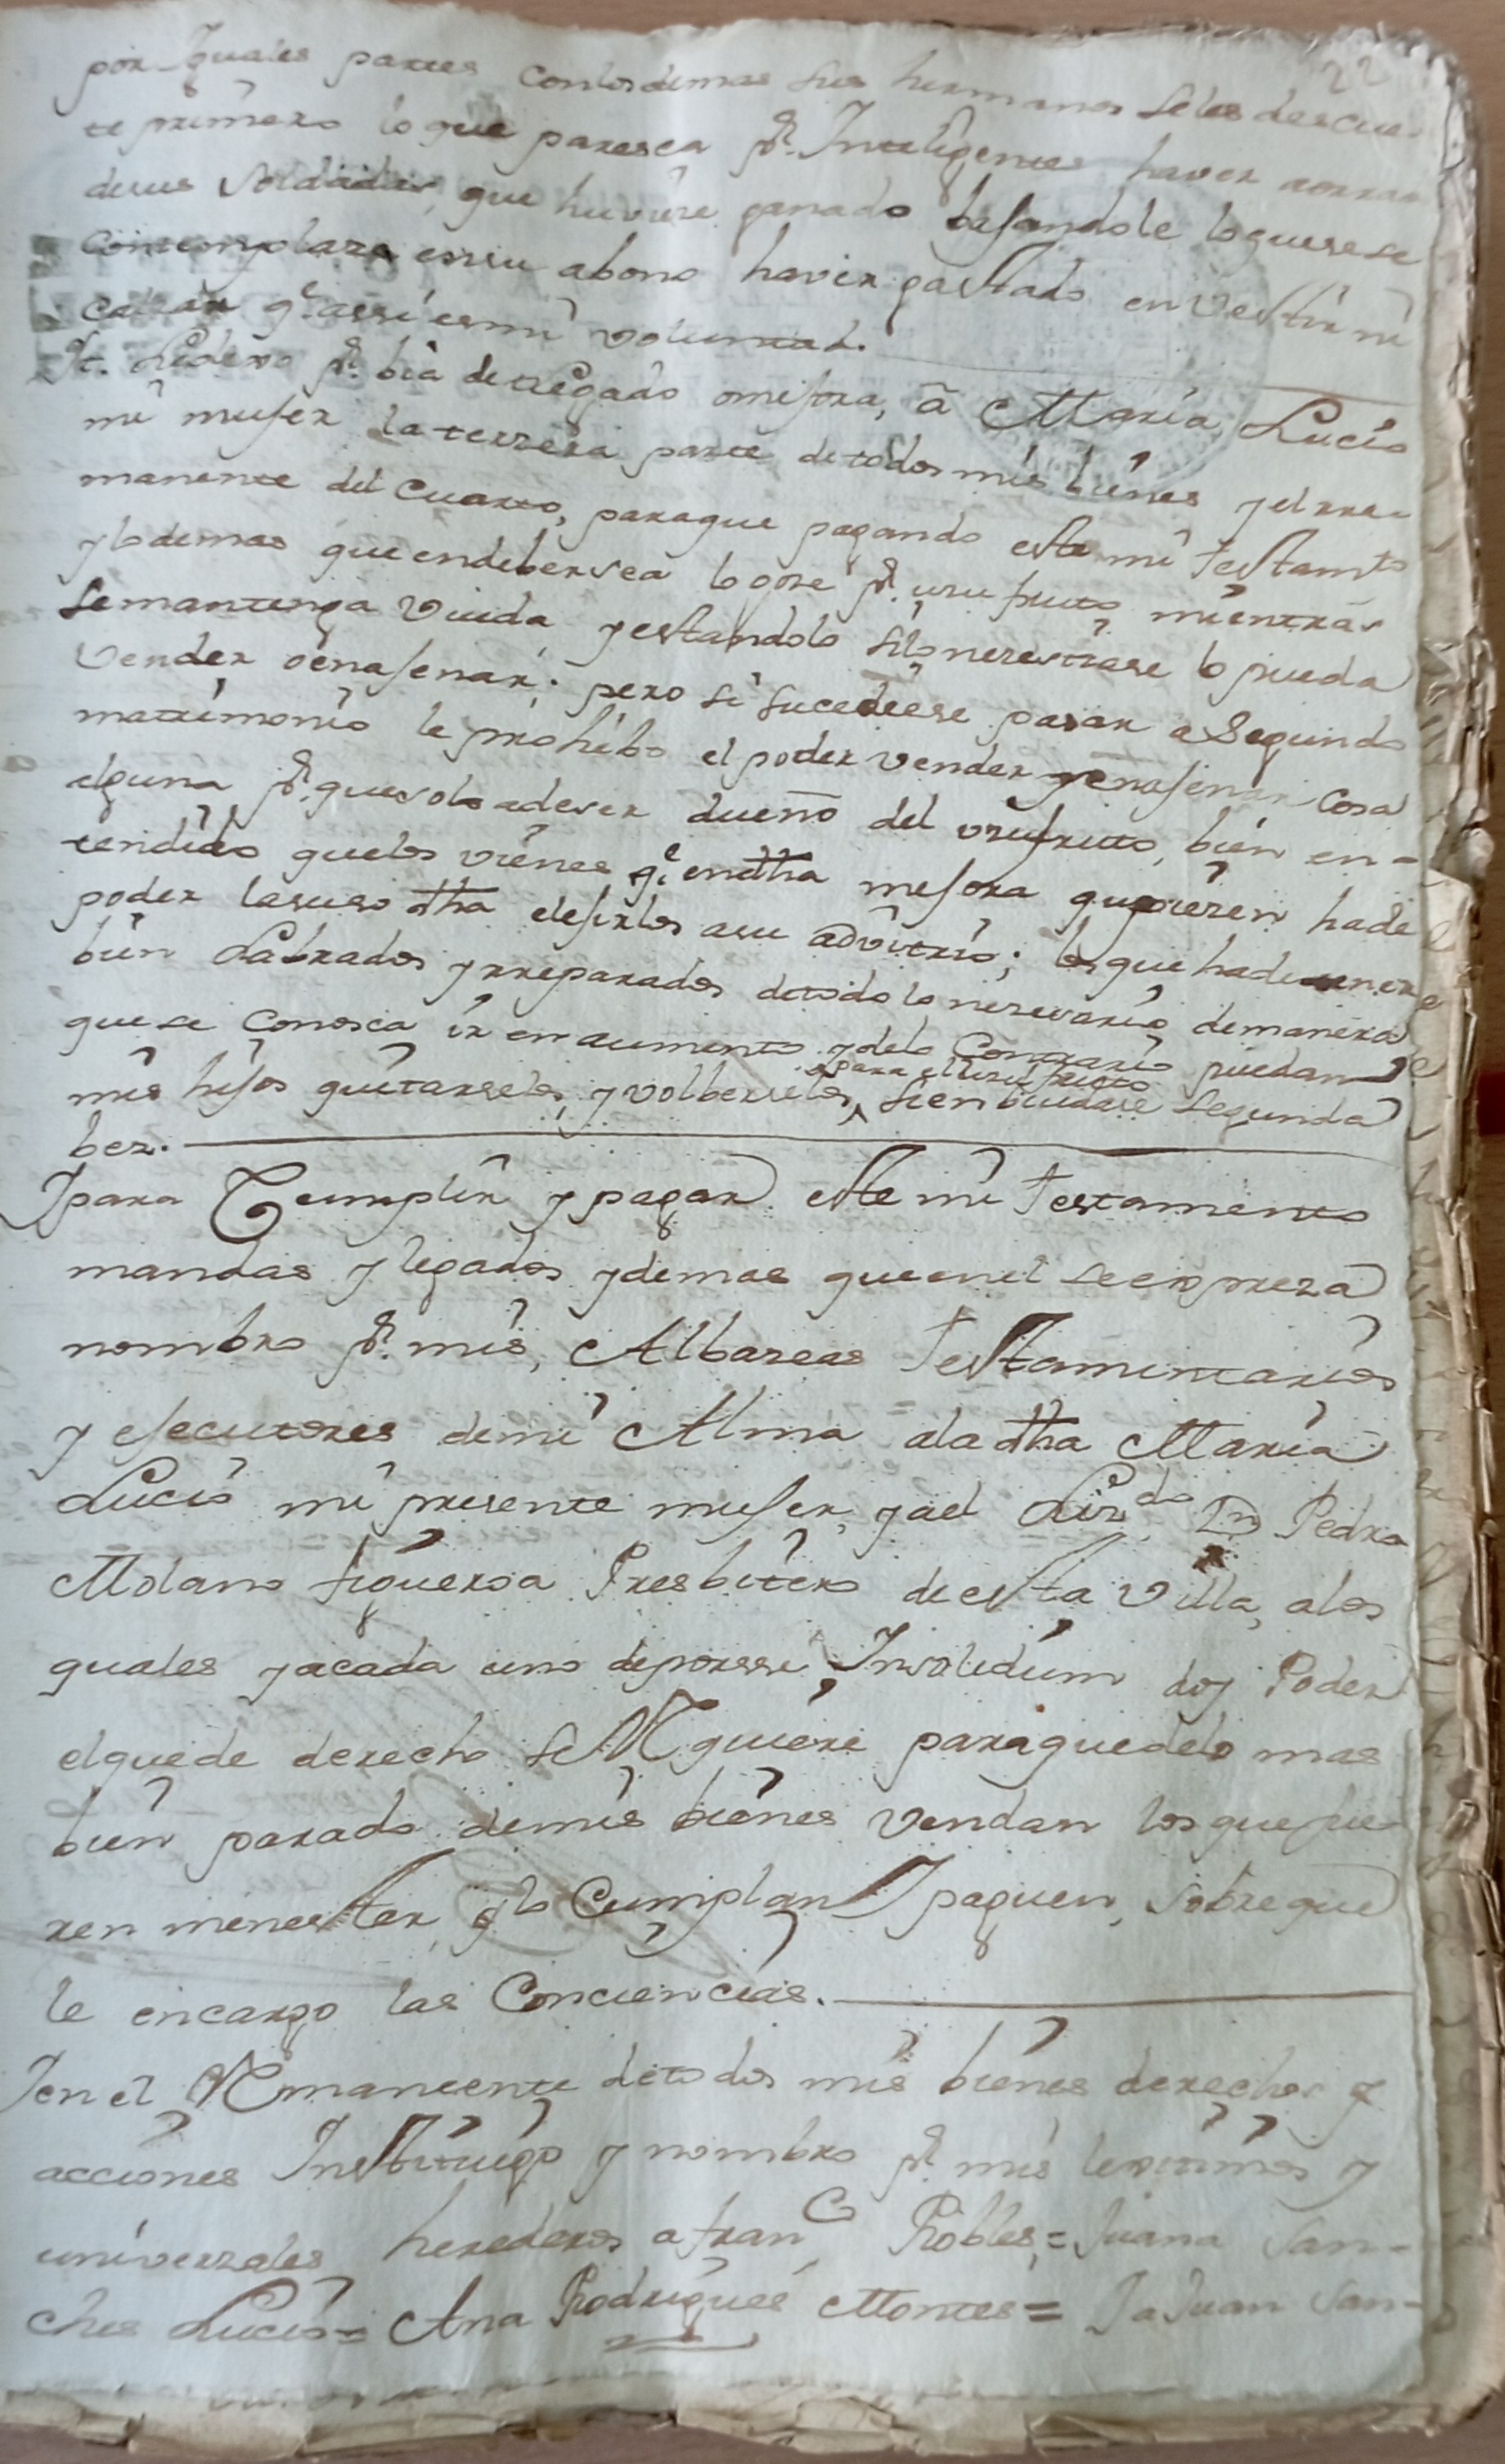 22
por Yguales partes conlosdemas sus hermanos seles descuen
te primero loque paresca pr. Inteligentes haver
desus soldadas, que huviere ganado bajandole loquesele
contemplara ensu abono haver gastado en vestir ni
calzar qe. assi esmi voluntad.
Yt. Lidexo pr. bia delegado omejora, â Maria Lucio
mi mujer la tercera parte detodos mis bienes y el rre=
manente del Cuarto, paraque pagando este mi testamto
y lo demas que endebersea lo gose pr. usufruto mientras
semantenga viuda, y estandolo silo nesesitase lo pueda
vender ôenajenar; pero si sucediese pasar a segundo
matrimonio le prohibo el poder vender yenajenar cosa
alguna pr. quesolo adeser dueño del usufruto, bien en=
tendido quelos vienes qe. en dha mejora cupieren hade
poder lasuso dha elejirlos asu advitrio; los que hade tener
bien Labrados yrreparados detodo lo nesesario demanera
quese conosca ir en aumento, ydelo contrario puedan
mis hijos quitarselos, y volberselos ^ para el usufruto sienbiudase segunda
bez.
Ypara Cumplir y pagar este mi testamento
mandas y legados ydemas queenel seexpreza
nombro pr. mis, Albaseas testamentarios
y ejecutores demi Alma = ala dha Maria
Lucio mi presente mujer, yael Lizdo. Dn Pedro
Molano figueroa Presbitero deesta Villa, alos
quales yacada uno deporssi, Insolidum doy Poder
elquede derecho se Rquiere paraquedelo mas
bien parado demis bienes vendan los quefue
ren menester, ylo Cumplan Ypaguen, sobreque
le encargo las Conciencias.
Yen el Rmaneente detodos mis bienes derechos y
acciones Instituigo y nombro pr. mis lexitimos y
universales herederos afranco Robles = Juana San=
ches Lucio = Ana Rodrigues Montes = YaJuan San=